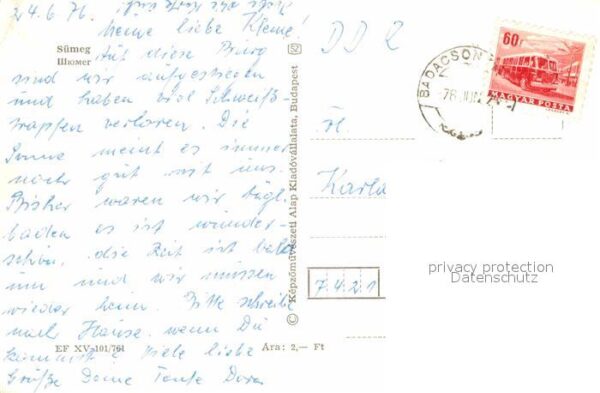 24.6.76.
Meine liebe Kleine!
Sümeg
Шюмег
Auf diese Burg
sind wir aufgestiegen
und haben viel Schweiß-
tropfen verloren. Die
Sonne meint es immer
noch gut mit uns.
Bisher waren wir tägl.
baden es ist wunder-
schön. die Zeit ist bald
um und wir müssen
wieder heim. Bitte schreibe
nach Hause, wenn Du
kommst. Viele liebe
Grüße Deine Tante Dora
EF XV-101/761 Ára: 2,— Ft
© Képzőművészeti Alap Kiadóvállalata, Budapest
DDR
60f
MAGYAR POSTA
BADACSONY
Fl.
Karla
7.4.2.1
privacy protection
Datenschutz